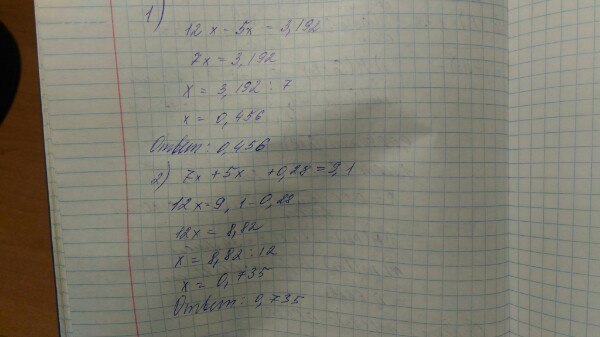 1)
12x - 5x = 3,192
7x = 3,192
x = 3,192 : 7
x = 0,456
Ответ: 0,456
2) 7x + 5x + 0,28 = 9,1
12x = 9,1 - 0,28
12x = 8,82
x = 8,82 : 12
x = 0,735
Ответ: 0,735